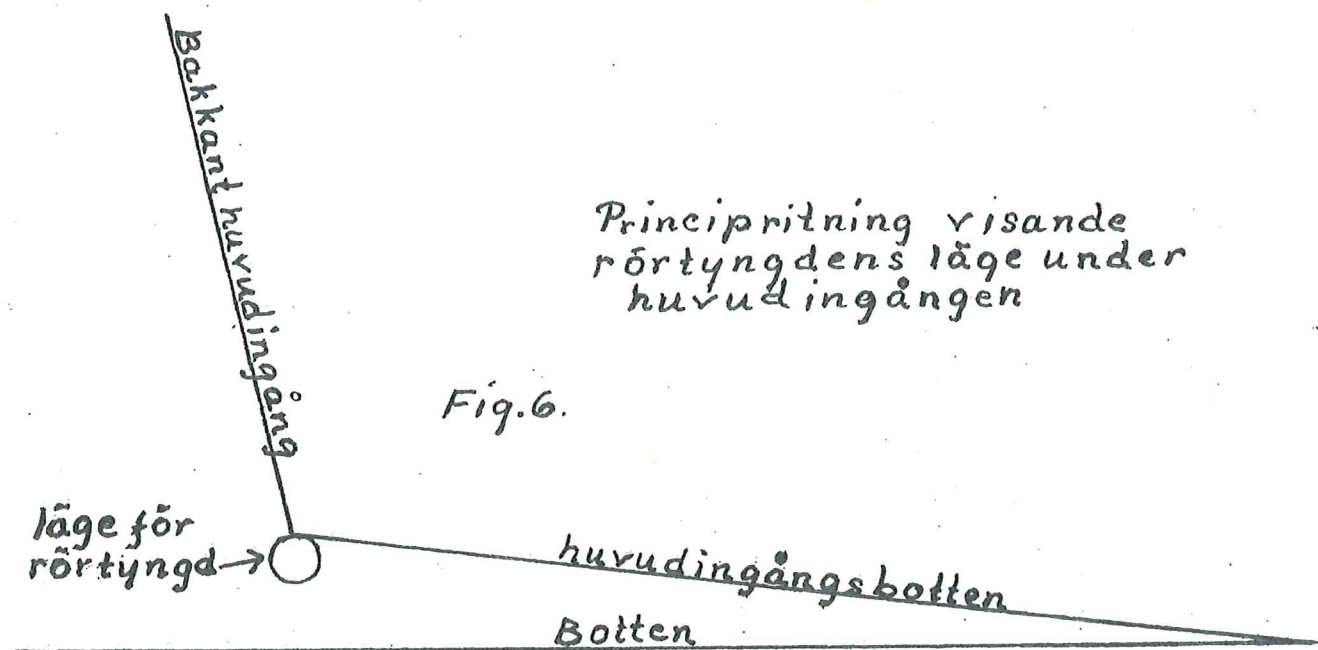 Bakkant huvudingång
Principritning visande
rörtyngdens läge under
huvudingången
Fig.6.
läge för
rörtyngd
huvudingångsbotten
Botten